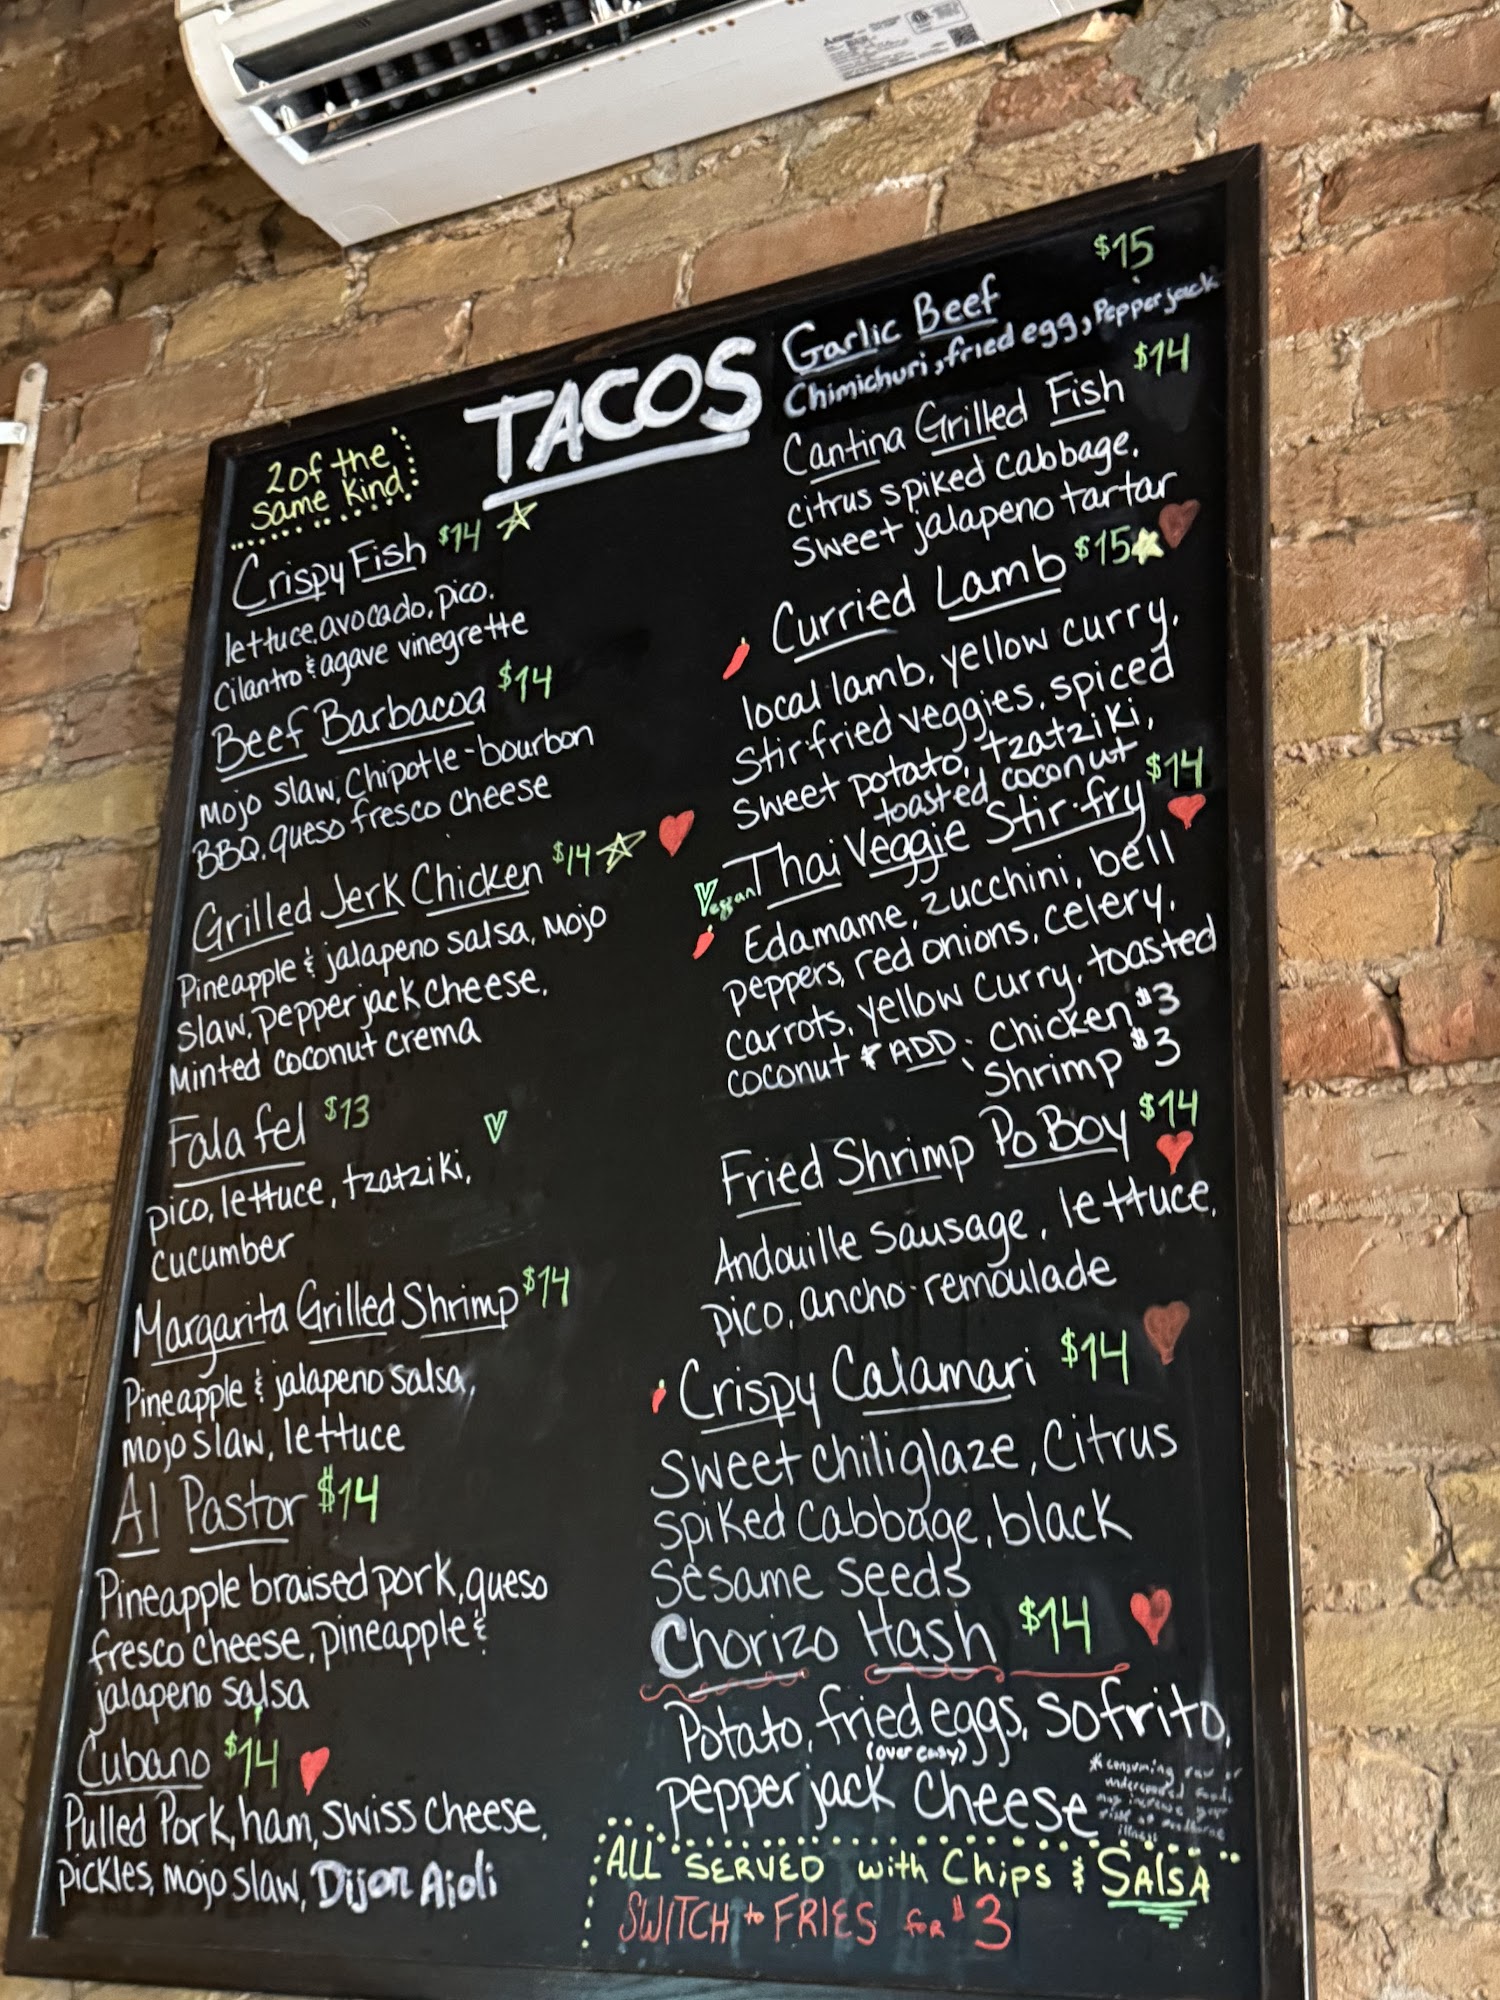 TACOS
2 of the
same kind.
Crispy Fish $14
lettuce, avocado, pico.
cilantro & agave vinegrette
Beef Barbacoa $14
Mojo slaw, Chipotle-bourbon
BBQ. queso fresco cheese
Grilled Jerk Chicken $14
Pineapple & jalapeno salsa, Mojo
slaw, pepper jack cheese,
Minted coconut crema
Falafel $13
V
pico, lettuce, tzatziki,
cucumber
Margarita Grilled Shrimp $14
Pineapple & jalapeno salsa,
mojo slaw, lettuce
Al Pastor $14
Pineapple braised pork, queso
fresco cheese, pineapple &
jalapeno salsa
Cubano $14
Pulled Pork, ham, Swiss cheese,
pickles, mojo slaw, Dijon Aioli
$15
Garlic Beef
Chimichuri, fried egg, Pepper jack
Cantina Grilled Fish $14
citrus spiked cabbage,
sweet jalapeno tartar
Curried Lamb $15
local lamb, yellow curry,
stirfried veggies, spiced
sweet potato, tzatziki,
toasted coconut
Thai Veggie Stir-fry $14
Vegan
Edamame, zucchini, bell
peppers, red onions, celery,
carrots, yellow curry, toasted
coconut * ADD: Chicken $3
Shrimp $3
Fried Shrimp Po Boy $14
Andouille sausage, lettuce,
pico, ancho-remoulade
Crispy Calamari $14
Sweet chili glaze, Citrus
spiked cabbage, black
sesame seeds
Chorizo Hash $14
Potato, fried eggs, sofrito,
(over easy)
pepper jack cheese
*consuming raw or
undercooked foods
may increase your
risk of foodborne
illness
ALL SERVED with Chips & SALSA
SWITCH to FRIES for $3